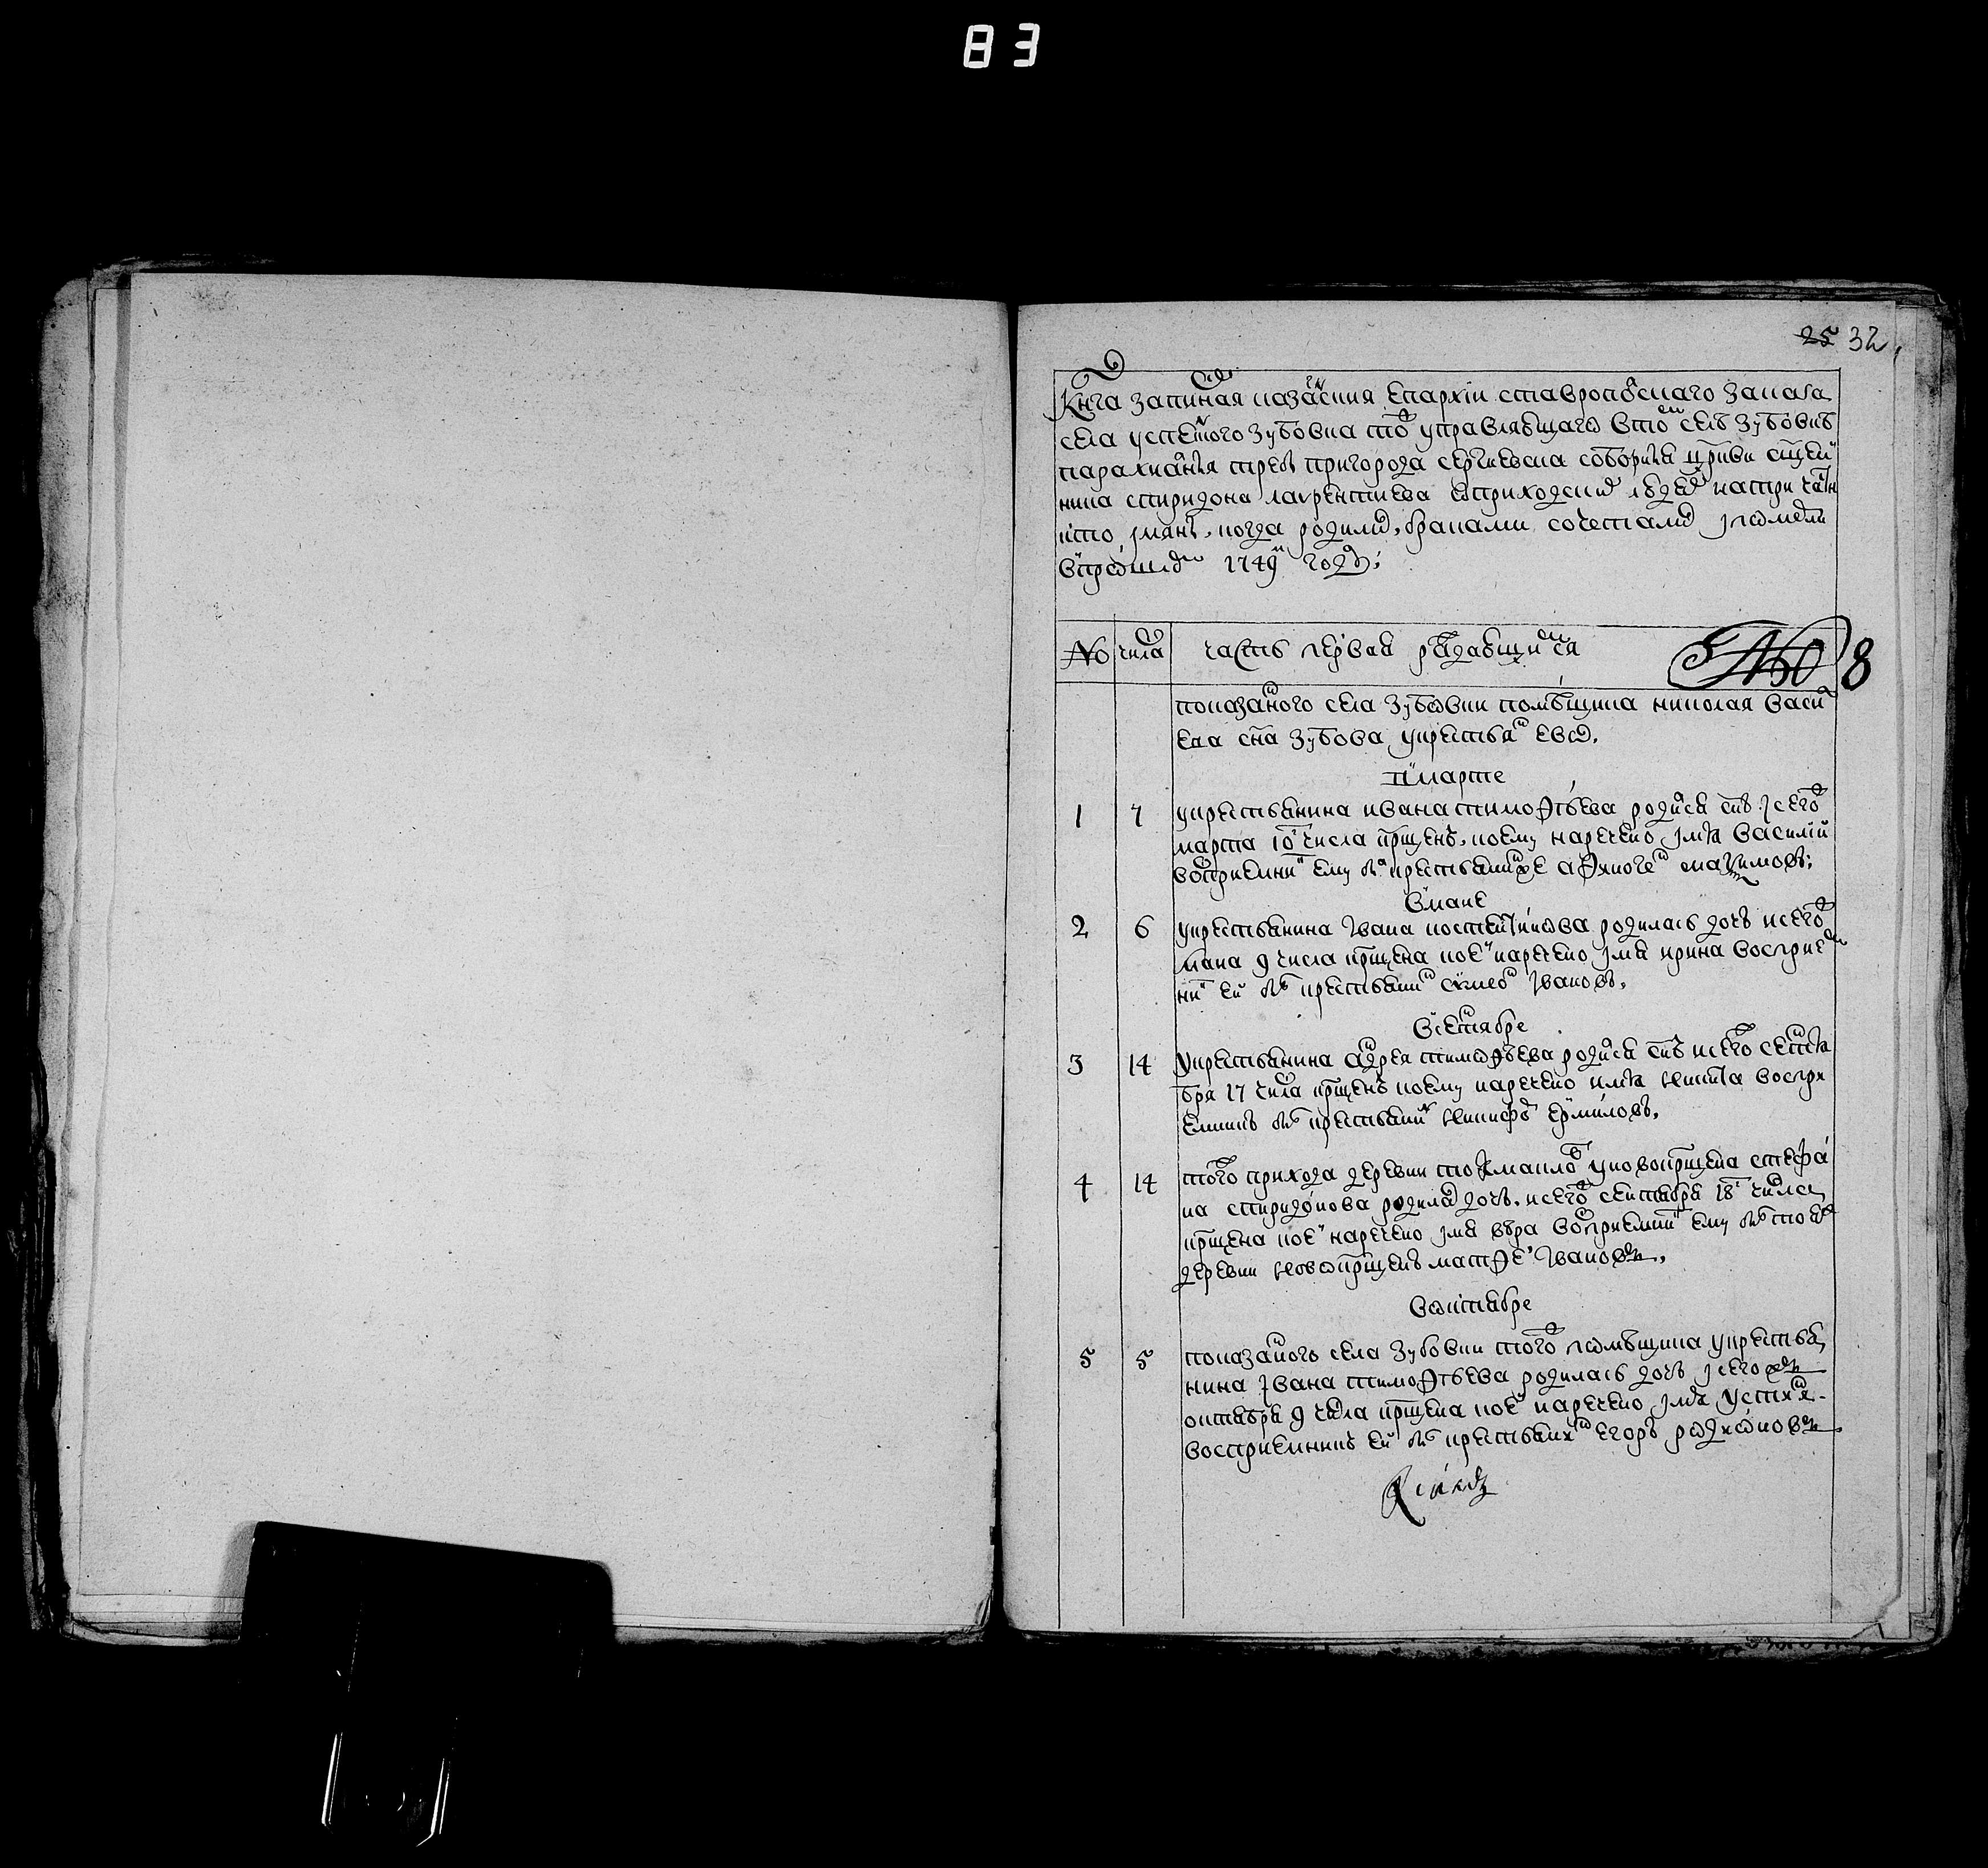 83
25 32
Книга записная казанския епархiи ставрополскаго заказа
села успенского зубовка тож управляющаго в том селе зубовке
парахианъ треб пригорода сергиевска соборныя цркви сщен
ника спиридона лаврентиева
имянъ, когда родилис, браками сочеталис и померли
в прошлом 1749м году;
No числа часть первая о раждающихся No 8
показанного села зубовки помѣщика николая васи
ева сна зубова у крестьян ево.
в марте
1 7 у крестьянина ивана тимоѳѣева родился снъ и сего ж
марта 10 числа крщенъ, коему наречено имя василiй
восприемник ему был крестьянин же максимовъ;
в маие
2 6 у крестьянина ивана костентинова родилась дочь и сего ж
маиа 9 числа крщена коей наречено имя ирина восприем
ник ей был крестьянин ивановъ.
в сентябре
3 14 у крестьянина андрея тимоѳѣева родился снъ и сего ж сентя
бря 17 числа крщенъ коему наречено имя никита воспри
емникъ был крестьянин никифоръ ермиловъ.
4 14 того ж прихода деревни у новокрщена стефа
на спиридонова родилас дочь, и сего ж сентября 18 числа
крщена коей наречено имя вѣра восприемник ему был той же
деревни новокрщенъ матѳей ивановъ.
в октябре
5 5 показанного села зубовки того ж помѣщика у крестья
нина ивана тимоѳѣева родилась дочь и сего ж
октября 9 числа крщена коей наречено имя устинья
восприемникъ ей был крестьянин егоръ родионовъ